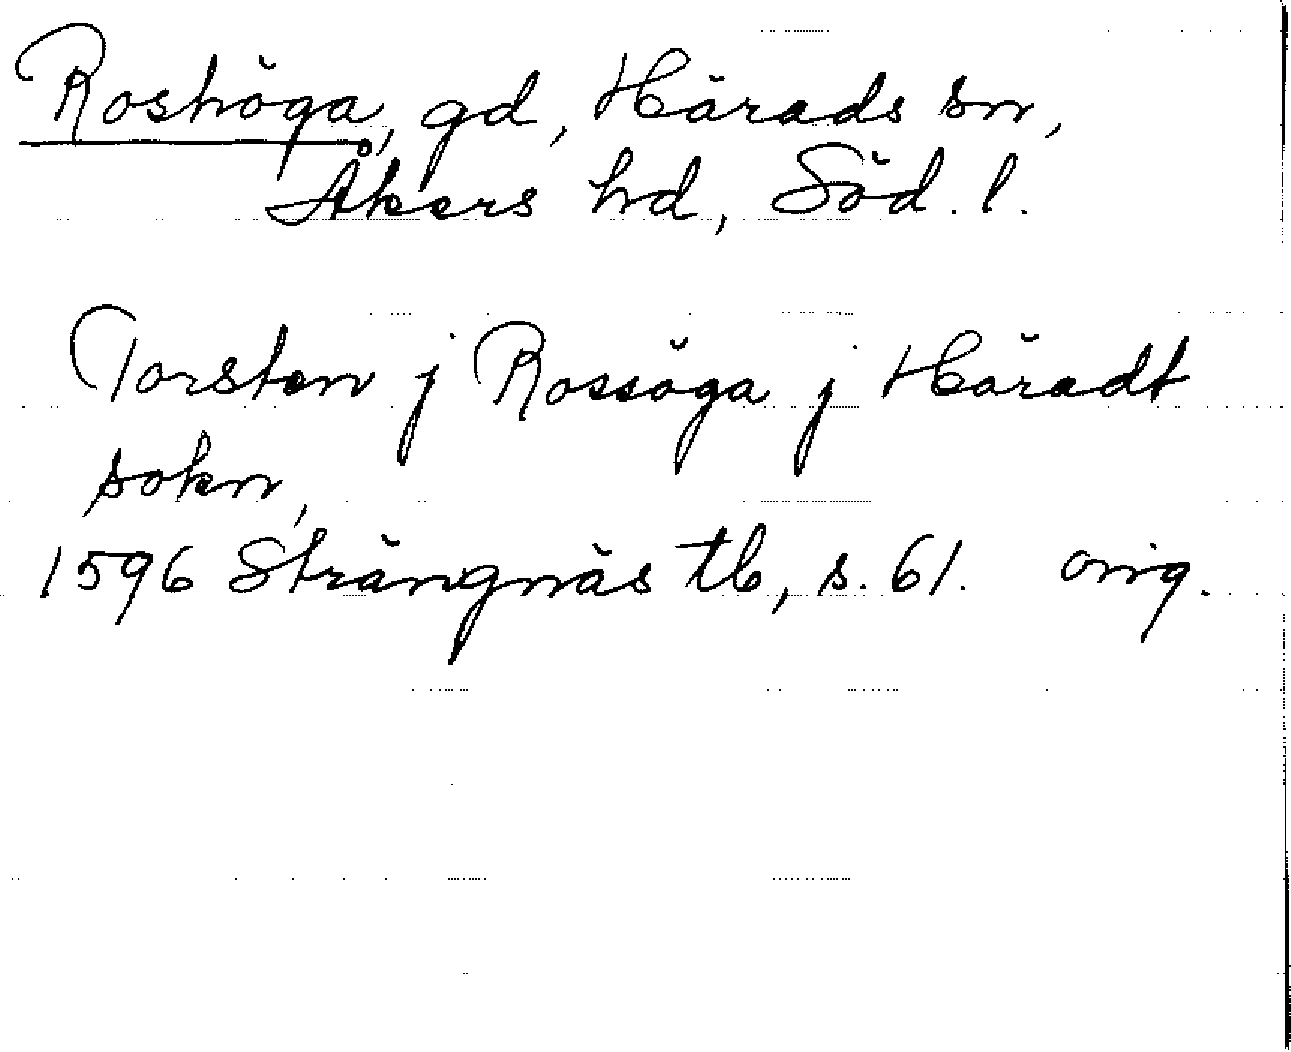 Roshöga, gd, Härads sn,
Åkers hd, Söd. l.
Torsten j Rossöga j Häradt
sokn,
1596 Strängnäs tb, s. 61. orig.